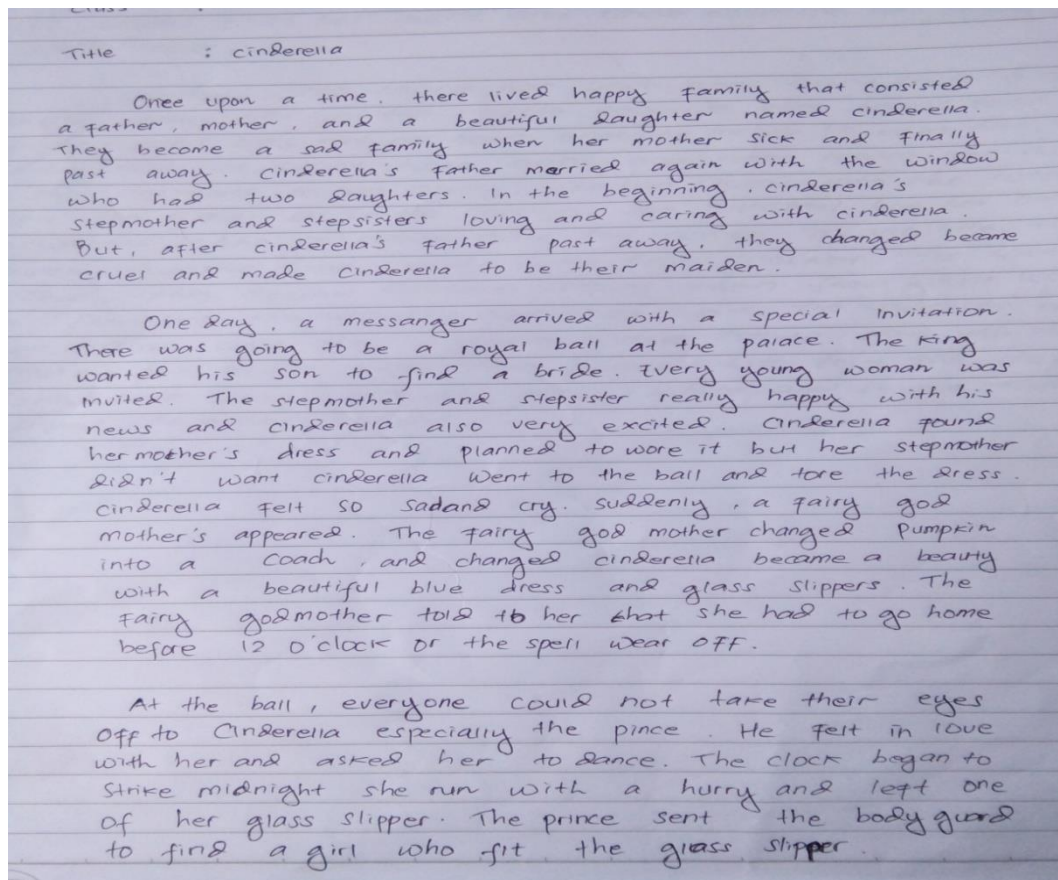 Title : cinderella
Once upon a time, there lived happy family that consisted
a father, mother, and a beautiful daughter named cinderella.
They become a sad family when her mother sick and finally
past away. cinderella's father married again with the window
who had two daughters. In the beginning, cinderella's
stepmother and stepsisters loving and caring with cinderella.
But, after cinderella's father past away, they changed became
cruel and made cinderella to be their maiden.
One day, a messanger arrived with a special invitation.
There was going to be a royal ball at the palace. The King
wanted his son to find a bride. Every young woman was
invited. The stepmother and stepsister really happy with his
news and cinderella also very excited. Cinderella found
her mother's dress and planned to wore it but her stepmother
didn't want cinderella went to the ball and tore the dress.
cinderella felt so sadand cry. suddenly, a fairy god
mother's appeared. The fairy god mother changed pumpkin
into a coach, and changed cinderella became a beauty
with a beautiful blue dress and glass slippers. The
fairy godmother told to her that she had to go home
before 12 o'clock or the spell wear off.
At the ball, everyone could not take their eyes
off to Cinderella especially the pince. He felt in love
with her and asked her to dance. The clock began to
strike midnight she run with a hurry and left one
of her glass slipper. The prince sent the body guard
to find a girl who fit the glass slipper.